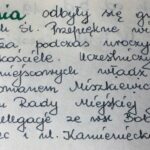 nia odbyły się g
i Śl. Przepiękne wi
ża, podczas uroczy
kościele. Uczestniczy
miejscowych władz
omanem Miszkiewic
m Rady Miejskiej
elegacje ze wsi Sob
ec i ul. Kamienieck